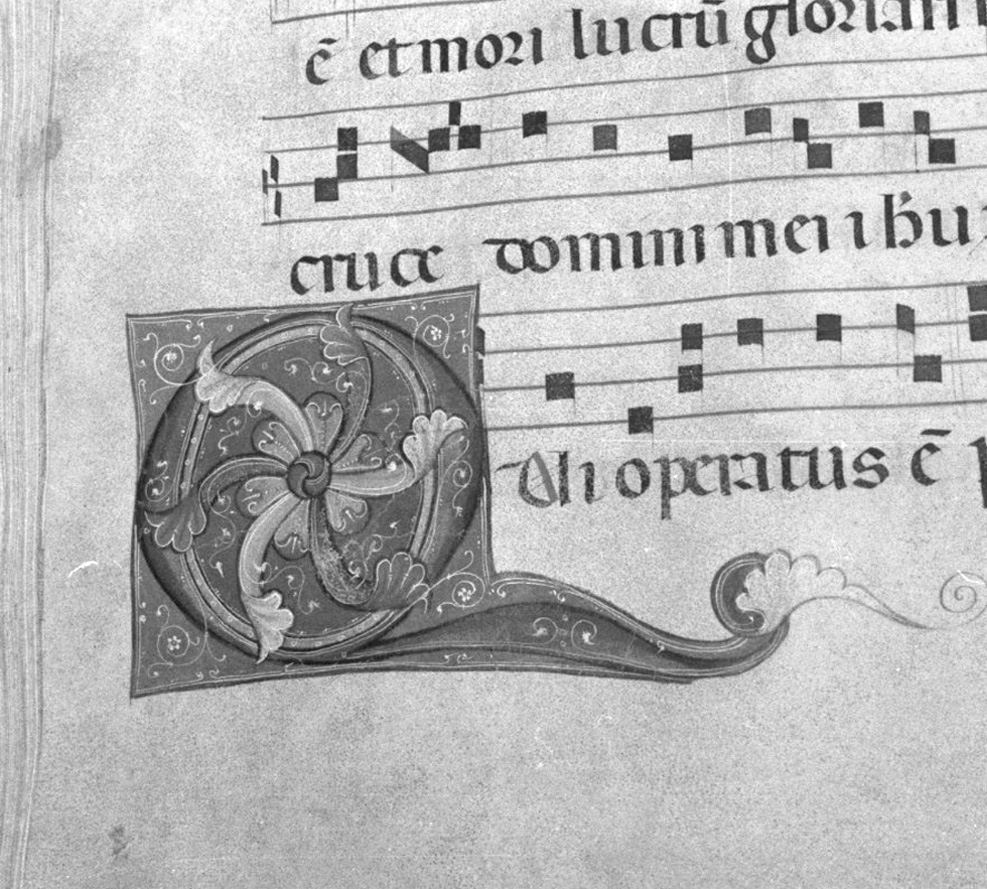 ē et mori lucrū gloriari
cruce domini mei ihu
Qui operatus ē